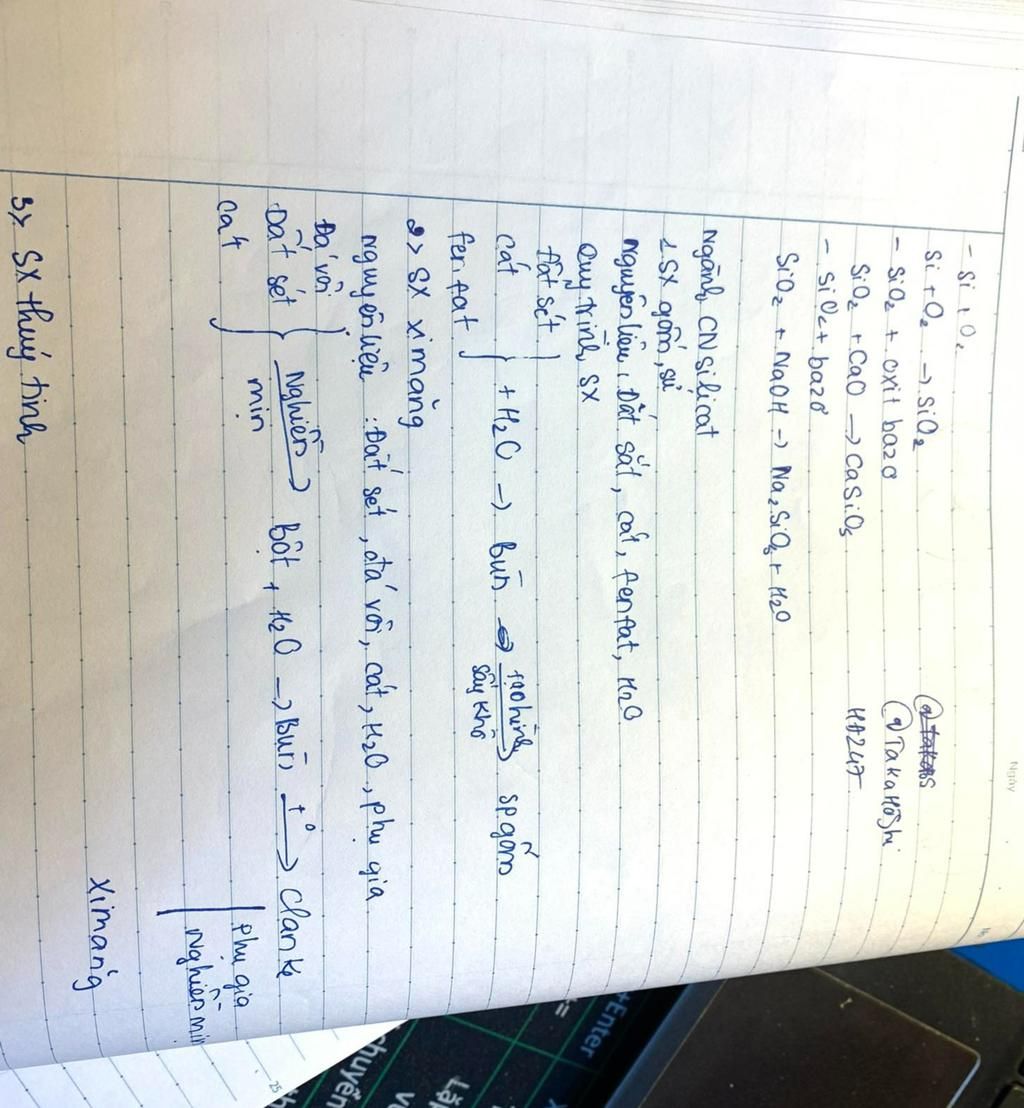 Ngày
- Si + O₂
Si + O₂ → SiO₂
- SiO₂ + oxit bazơ
SiO₂ + CaO → CaSiO₃
- SiO₂ + bazơ
SiO₂ + NaOH → Na₂SiO₃ + H₂O
@TakaHoShi
HA247
Ngành CN silicat
1 SX gốm, sứ
Nguyên liệu: Đất sắt, cát, fenfat, H₂O
Quy trình SX
Đất sét
Cát
fenfat
+ H₂O → Bùn → tạo hình sấy khô → SP gốm
2> SX ximăng
Nguyên liệu : Đất sét, đá vôi, cát, H₂O, phụ gia
Đá vôi
Đất sét
Cat
Nghiền mịn → Bột + H₂O → Bùn t° → Clanke
phụ gia
Nghiền mịn
Ximăng
3> SX thuỷ tinh
+Enter
chuyên
Lặp
25